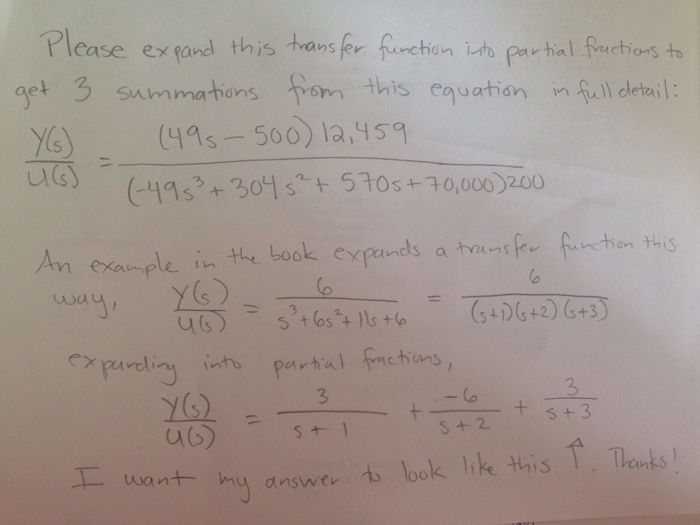 Please expand this transfer function into partial fractions to
get 3 summations from this equation in full detail:
Y(s)/U(s) = (49s - 500) 12,459 / (-49s³ + 304s² + 570s + 70,000)200
An example in the book expands a transfer function this
way, Y(s)/U(s) = 6 / s³+6s²+11s+6 = 6 / (s+1)(s+2)(s+3)
expanding into partial fractions,
Y(s)/U(s) = 3 / s+1 + -6 / s+2 + 3 / s+3
I want my answer to look like this ↑. Thanks!